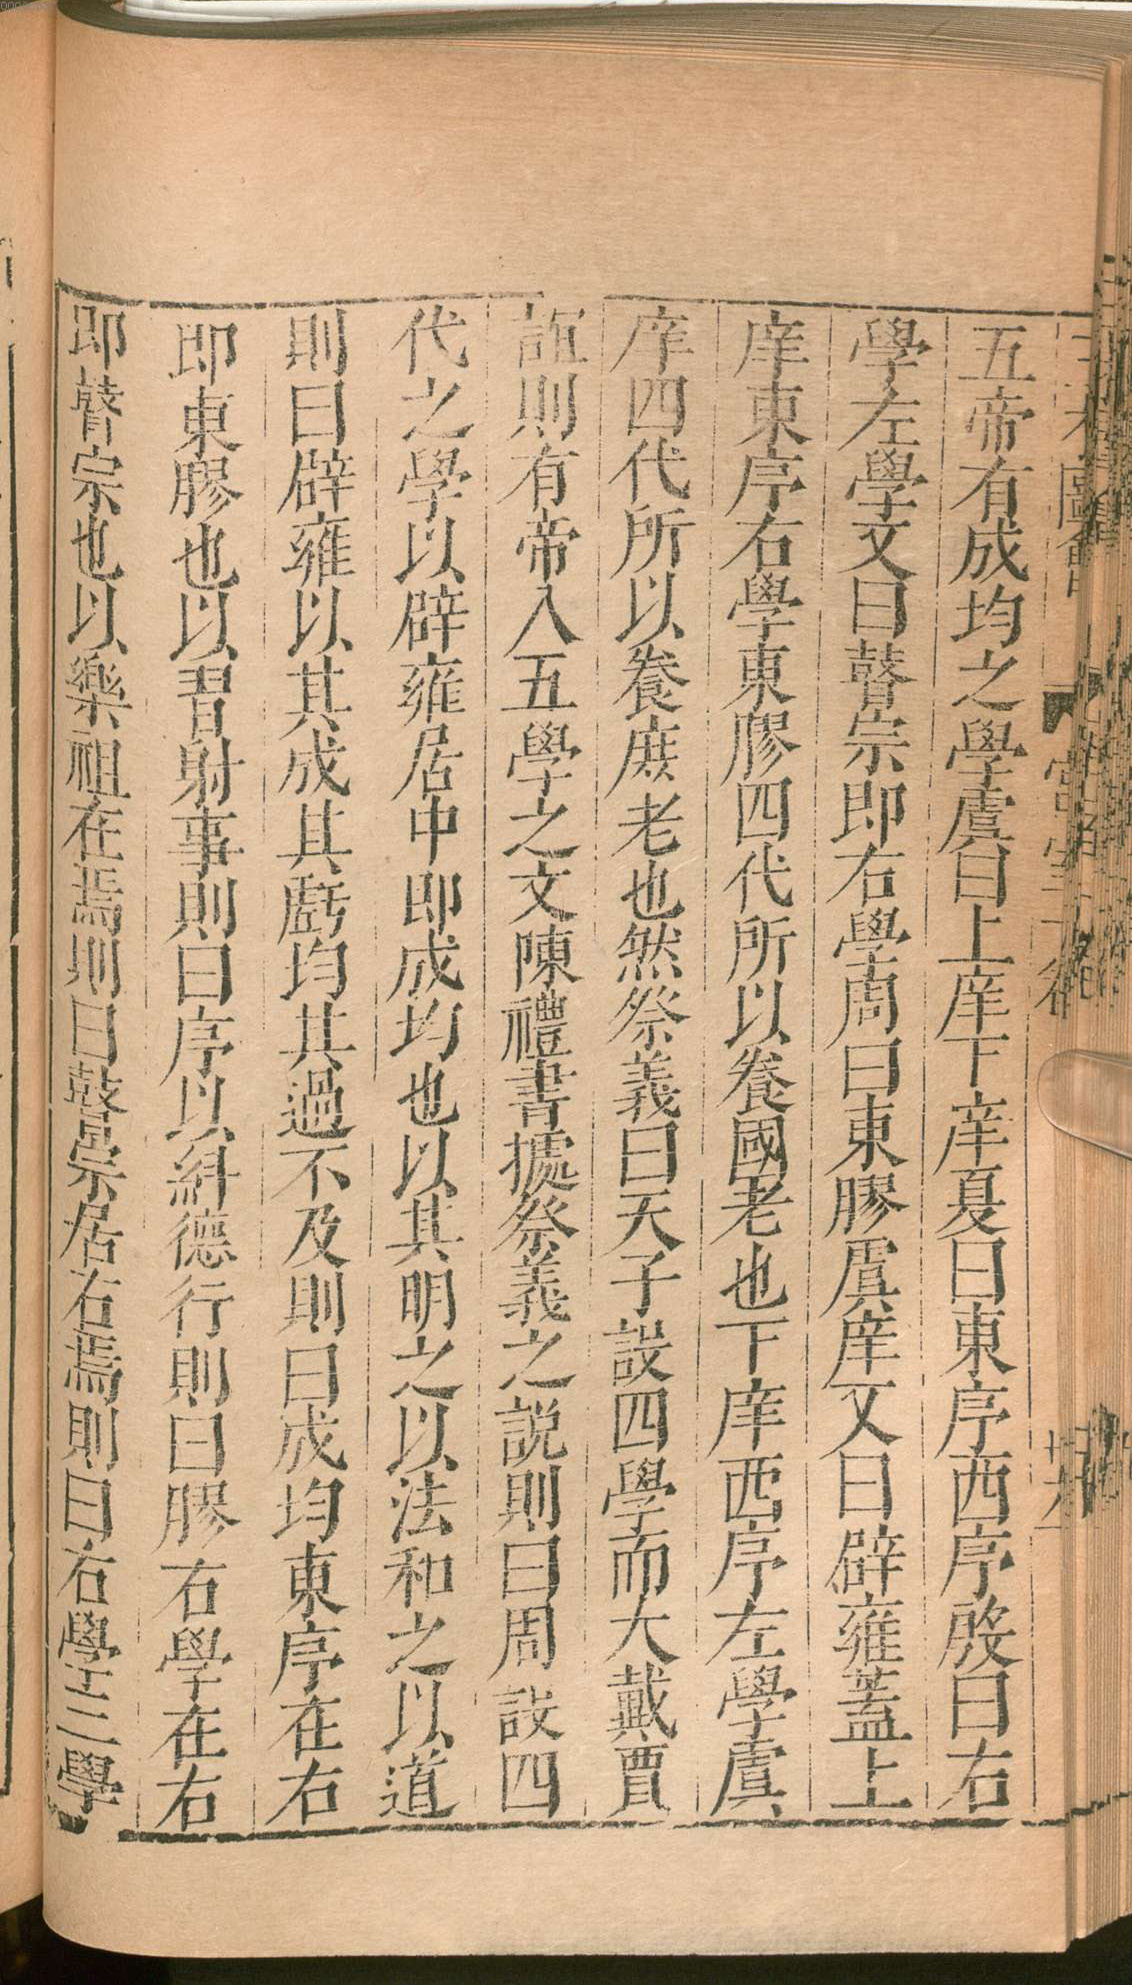 五帝有成均之學虞曰上庠下庠夏曰東序西序殷曰右
學左學文曰瞽宗即右學周曰東膠虞庠又曰辟雍蓋上
庠東序右學東膠四代所以養國老也下庠西序左學虞
庠四代所以養庶老也然祭義曰天子設四學而大戴賈
誼則有帝入五學之文陳禮書據祭義之説則曰周設四
代之學以辟雍居中即成均也以其明之以法和之以道
則曰辟雍以其成其虧均其過不及則曰成均東序在右
即東膠也以習射事則曰序以糾德行則曰膠右學在右
即瞽宗也以樂祖在焉則曰瞽宗居右焉則曰右學三學